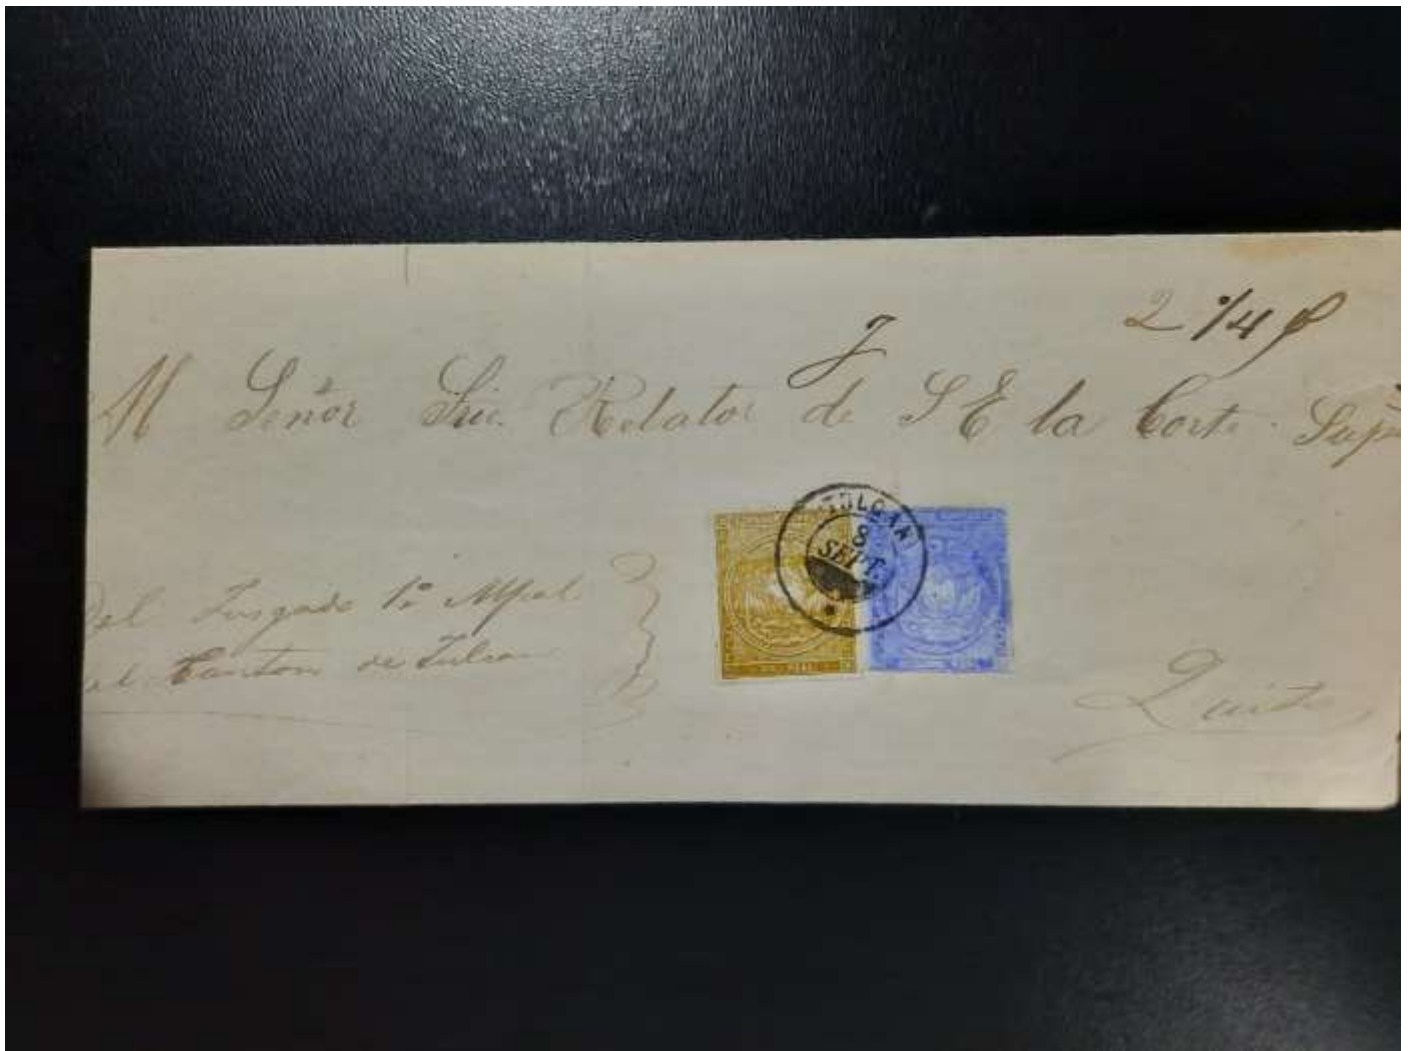 2 1/4
Al Señor Srio. Relator de S E la Corte Sup
TULCAN
8
SEPT.
del Juzgado 1º Mpal
del Canton de Tulcan
Quito